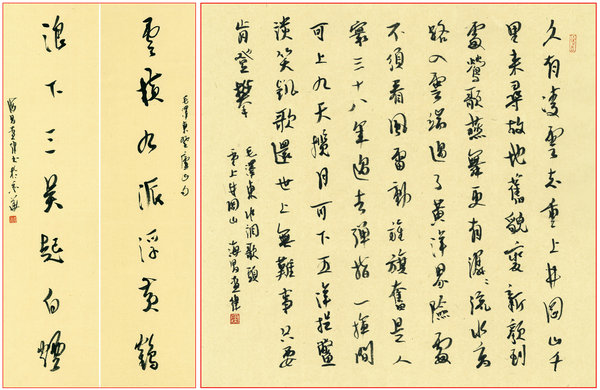 久有凌雲志重上井岡山千
里来尋故地舊貌變新顏到
處鶯歌燕舞更有潺〻流水高
路入雲端過了黃洋界險處
不須看風雷動旌旗奮是人
寰三十八年過去彈指一揮間
可上九天攬月可下五洋捉鱉
談笑凱歌還世上無難事只要
肯登攀
毛澤東水調歌頭
重上井岡山 海昌
毛澤東登廬山句
雲橫九派浮黃鶴
浪下三吳起白煙
海昌